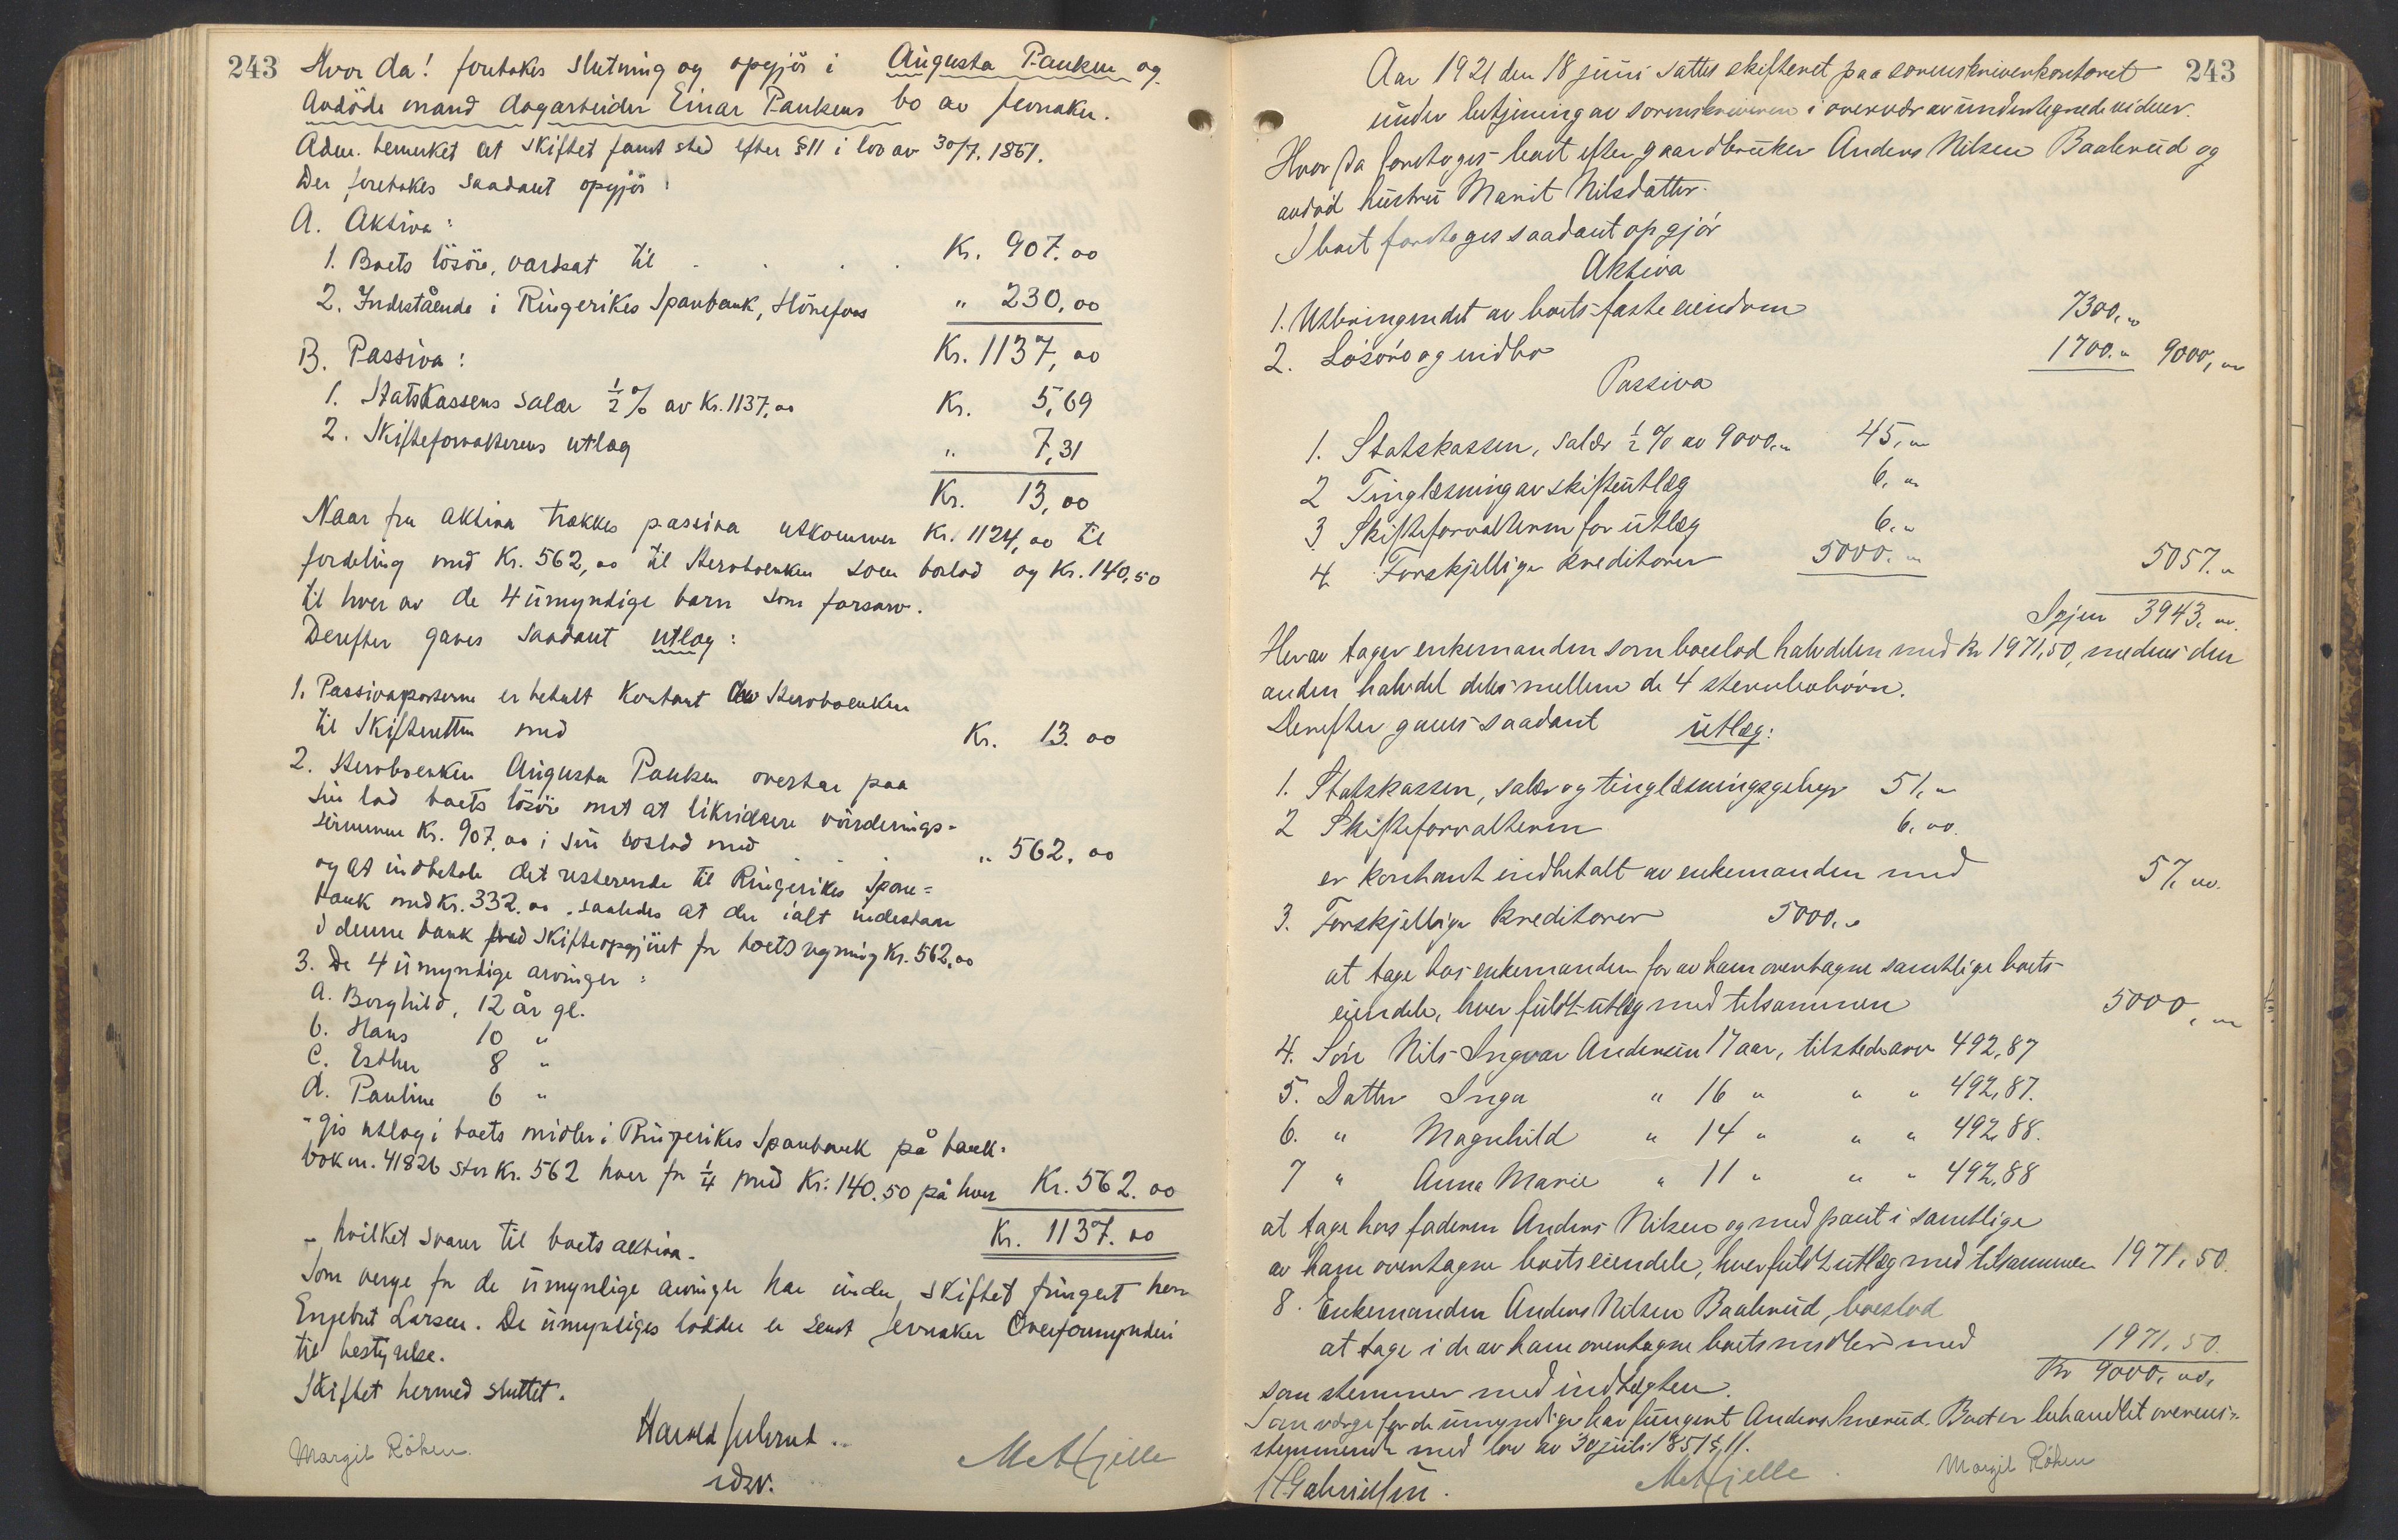 243 Hvor da! foretokes slutning og opgjör i Augusta Paulsen og
avdöde mand dagarbeider Einar Paulsens bo av Jevnaker.
Adm. bemerket at skiftet fandt sted efter § 11 i lov av 30/7. 1851.
Der foretokes saadant opgjör:
A. Aktiva:
1. Boets lösöre, værdsat til . . . . Kr. 907.00
2. Indestående i Ringerikes Sparebank, Hönefoss " 230,00
Kr. 1137,00
B. Passiva:
1. Statskassens salær ½ % av Kr. 1137,00 Kr. 5,69
2. Skifteforvalterens utlæg " 7,31
Kr. 13,00
Naar fra aktiva trækkes passiva utkommer Kr. 1124,00 til
fordeling med Kr. 562,00 til Stervboenken som boslod og Kr. 140,50
til hver av de 4 umyndige barn som farsarv.
Derefter gaves saadant utlæg:
1. Passivaposterne er betalt kontant av Stervboenken
til Skifteretten med Kr. 13.00
2. Stervboenken Augusta Paulsen overtar paa
sin lod boets lösöre mot at likvidere vurderings-
summen Kr. 907.00 i sin boslod med " 562.00
og at indbetale det resterende til Ringerikes Spare-
bank med Kr. 332.00 . saaledes at der ialt indestaar
i denne bank ved skifteopgjöret for boets regning Kr. 562,00
3. De 4 umyndige arvinger:
a. Borghild, 12 år gl.
b. Hans 10 "
c. Esther 8 "
d. Pauline 6 "
- gis utlæg i boets midler i Ringerikes Sparebank på bank-
bok nr. 41826 stor Kr. 562 hver for ¼ med Kr: 140.50 på hver Kr. 562.00
- hvilket svarer til boets aktiva. Kr. 1137.00
Som verge for de umyndige arvinger har under skiftet fungert herr
Engebret Larsen. De umyndiges lodder er sendt Jevnaker Overformynderi
til bestyrelse.
Skiftet hermed sluttet.
Margit Röken. MAHjelle
Aar 1921 den 18 juni sattes skifteret paa sorenskriverkontoret 243
under betjening av sorenskriveren i overvær av undertegnede vidner.
Hvor da foretoges boet efter gaardbruker Anders Nilsen Baalerud og
avdöd hustru Marit Nilsdatter.
I boet foretoges saadant opgjör
Aktiva
1. Utbringendet av boets faste eiendom 7300,00
2. Lösöre og indbo 1700.00 9000,00
Passiva
1. Statskassen, salær ½ % av 9000.00 45,00
2 Tinglæsning av skifteutlæg 6,00
3 Skifteforvalteren for utlæg 6,00
4. Forskjellige kreditorer 5000.00 5057.00
Igjen 3943,00.
Herav tager enkemanden som boeslod halvdelen med kr 1971,50, medens den
anden halvdel deles mellem de 4 stervbobörn.
Derefter gaves saadant utlæg:
1. Statskassen, salær og tinglæsningsgebyr 51,00
2 Skifteforvalteren 6,00.
er kontant indbetalt av enkemanden med 57,00.
3. Forskjellige kreditorer 5000,00
at tage hos enkemanden for av ham overtagne samtlige boets
eiendele, hver fuldt utlæg med tilsammen 5000,00
4. Sön Nils Ingvar Andersen 17 aar, tilstede arv 492,87
5. Datter Inga " 16 " " " 492,87.
6. " Magnhild " 14 " " " 492,88.
7 " Anna Marie " 11 " " " 492,88
at tage hos faderen Anders Nilsen og med pant i samtlige
av ham overtagne boets eiendele, hver fuldt utlæg med tilsammen 1971,50.
8. Enkemanden Anders Nilsen Baalerud, boeslod
at tage i de av ham overtagne boets midler med 1971,50.
som stemmer med indtægten. Kr 9000,00.
Som værge for de umyndige har fungert Anders Smerud. Boet er behandlet overens-
stemmende med lov av 30 juli 1851 § 11.
MAHjelle. Margit Röken